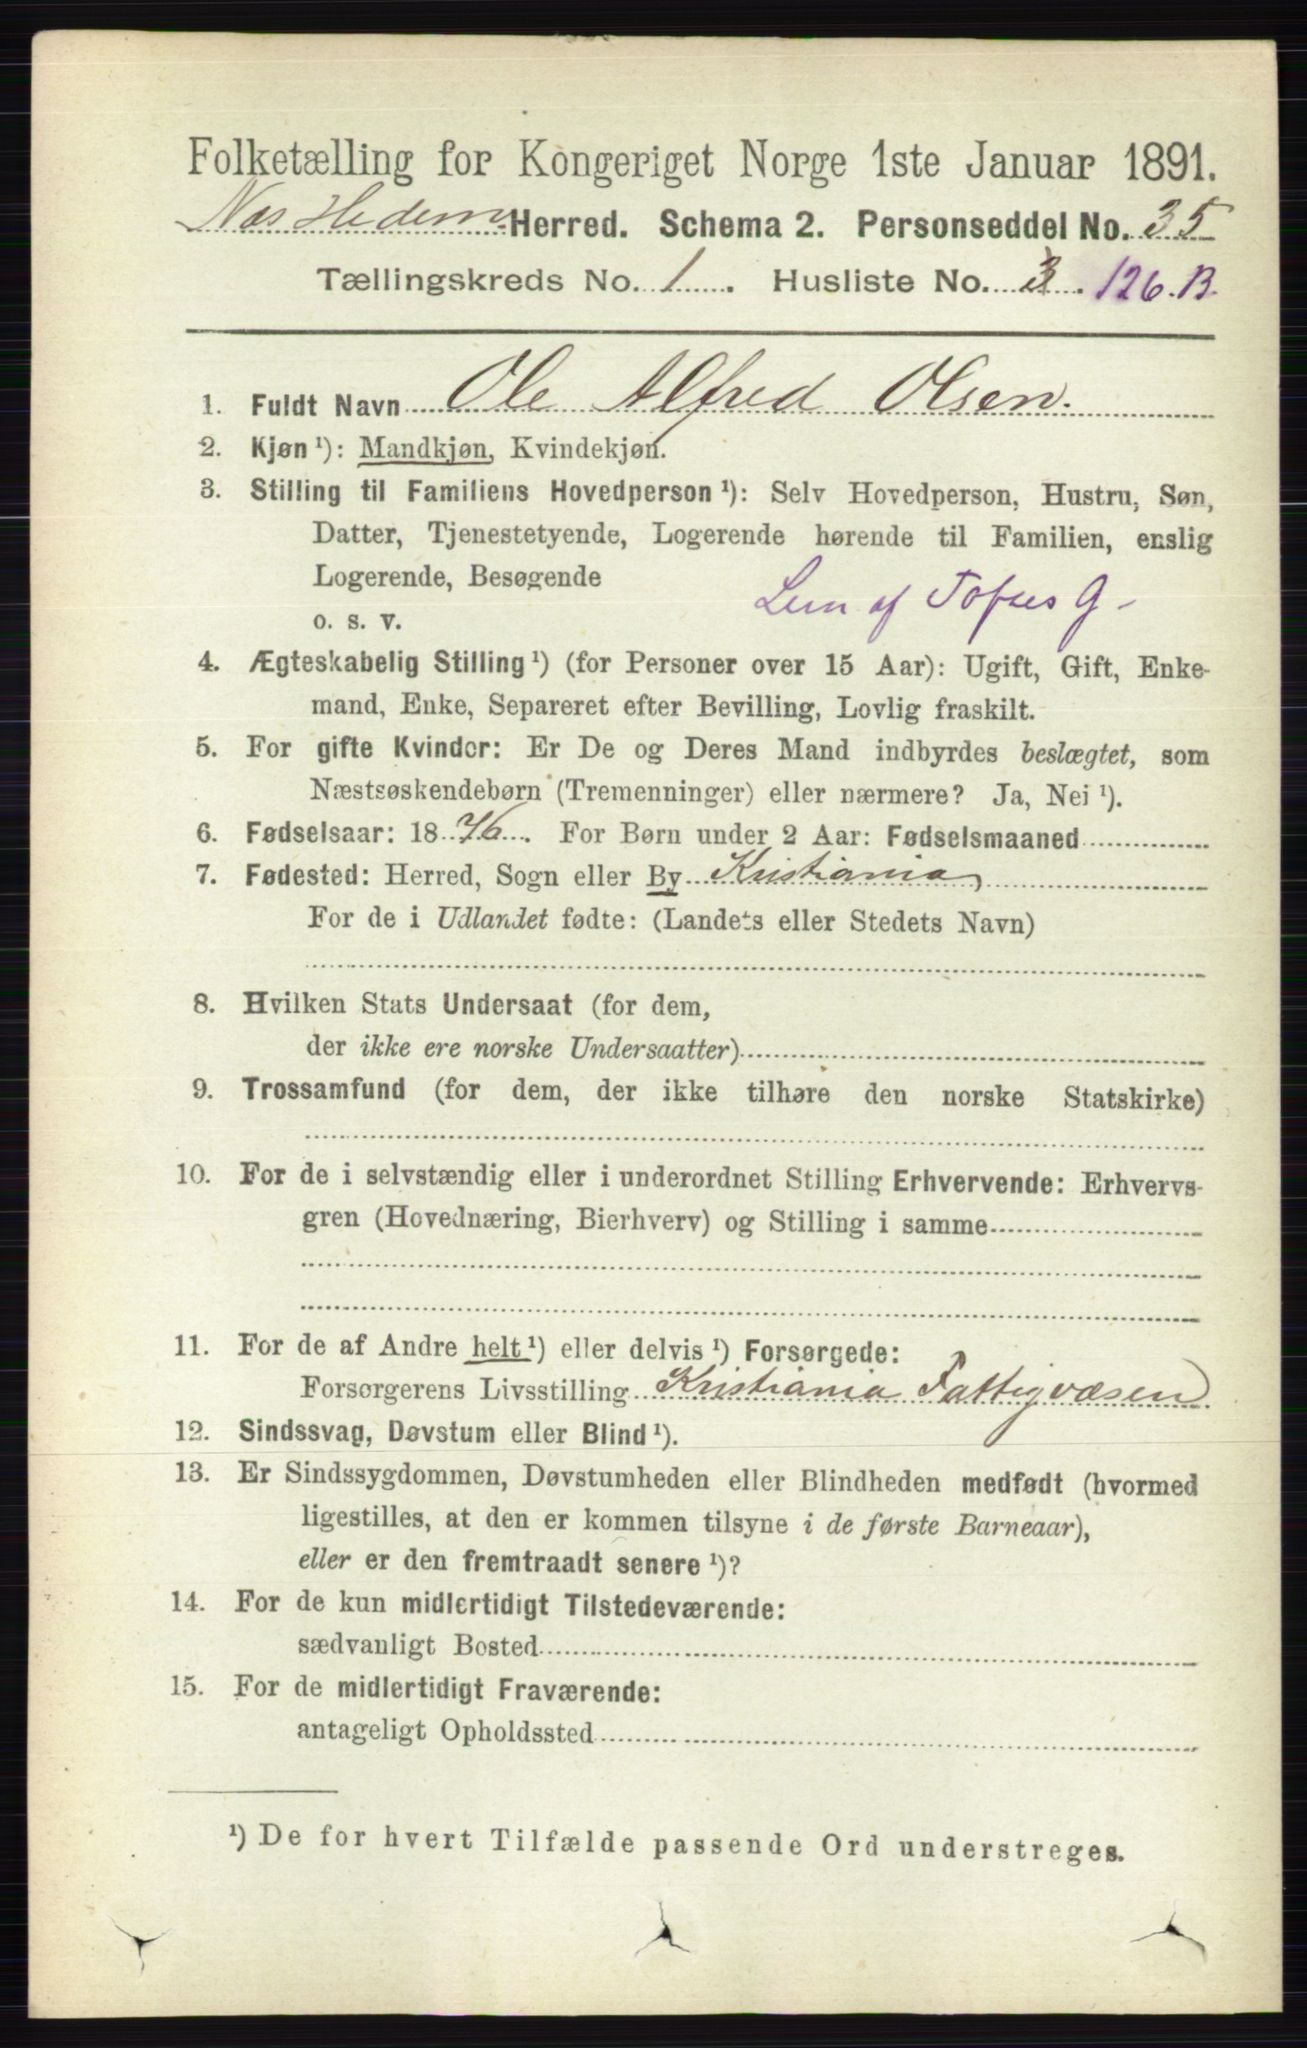 Folketælling for Kongeriget Norge 1ste Januar 1891.
Næs Hedem. Herred. Schema 2. Personseddel No. 35
Tællingskreds No. 1. Husliste No. 3. 126.B.
1. Fuldt Navn Ole Alfred Olsen.
2. Kjøn ¹): Mandkjøn, Kvindekjøn.
3. Stilling til Familiens Hovedperson ¹): Selv Hovedperson, Hustru, Søn,
Datter, Tjenestetyende, Logerende hørende til Familien, enslig
Logerende, Besøgende
o. s. v. Lem af Toftes G
4. Ægteskabelig Stilling ¹) (for Personer over 15 Aar): Ugift, Gift, Enke-
mand, Enke, Separeret efter Bevilling, Lovlig fraskilt.
5. For gifte Kvinder: Er De og Deres Mand indbyrdes beslægtet, som
Næstsøskendebørn (Tremenninger) eller nærmere? Ja, Nei ¹).
6. Fødselsaar: 1876. For Børn under 2 Aar: Fødselsmaaned
7. Fødested: Herred, Sogn eller By Kristiania
For de i Udlandet fødte: (Landets eller Stedets Navn)
8. Hvilken Stats Undersaat (for dem,
der ikke ere norske Undersaatter)
9. Trossamfund (for dem, der ikke tilhøre den norske Statskirke)
10. For de i selvstændig eller i underordnet Stilling Erhvervende: Erhvervs-
gren (Hovednæring, Bierhverv) og Stilling i samme
11. For de af Andre helt ¹) eller delvis ¹) Forsørgede:
Forsørgerens Livsstilling Kristiania Fattigvæsen
12. Sindssvag, Døvstum eller Blind ¹).
13. Er Sindssygdommen, Døvstumheden eller Blindheden medfødt (hvormed
ligestilles, at den er kommen tilsyne i de første Barneaar),
eller er den fremtraadt senere ¹)?
14. For de kun midlertidigt Tilstedeværende:
sædvanligt Bosted
15. For de midlertidigt Fraværende:
antageligt Opholdssted
¹) De for hvert Tilfælde passende Ord understreges.